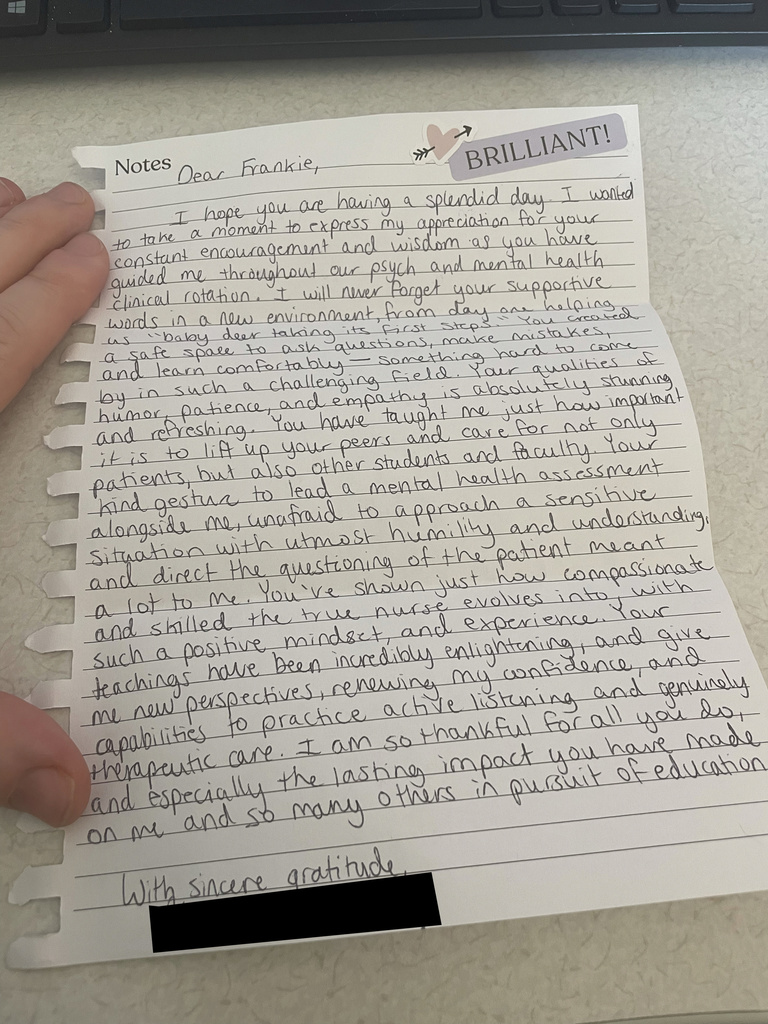 BRILLIANT!
Notes Dear Frankie,
I hope you are having a splendid day. I wanted
to take a moment to express my appreciation for your
constant encouragement and wisdom as you have
guided me throughout our psych and mental health
clinical rotation. I will never forget your supportive
words in a new environment, from day one helping
us "baby deer taking its first steps." You created
a safe space to ask questions, make mistakes,
and learn comfortably — something hard to come
by in such a challenging field. Your qualities of
humor, patience, and empathy is absolutely stunning
and refreshing. You have taught me just how important
it is to lift up your peers and care for not only
patients, but also other students and faculty. Your
kind gesture to lead a mental health assessment
alongside me, unafraid to approach a sensitive
situation with utmost humility and understanding,
and direct the questioning of the patient meant
a lot to me. You've shown just how compassionate
and skilled the true nurse evolves into, with
such a positive mindset, and experience. Your
teachings have been incredibly enlightening, and give
me new perspectives, renewing my confidence, and
capabilities to practice active listening and genuinely
therapeutic care. I am so thankful for all you do,
and especially the lasting impact you have made
on me and so many others in pursuit of education
With sincere gratitude,